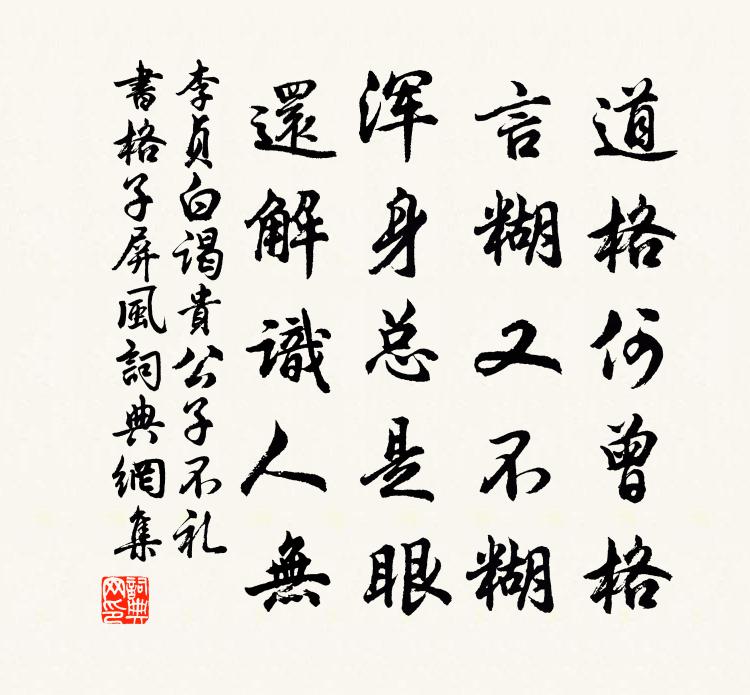 道格何曾格
言糊又不糊
浑身总是眼
還解識人無
李贞白谒貴公子不礼
書格子屏風詞典網集
詞典網印